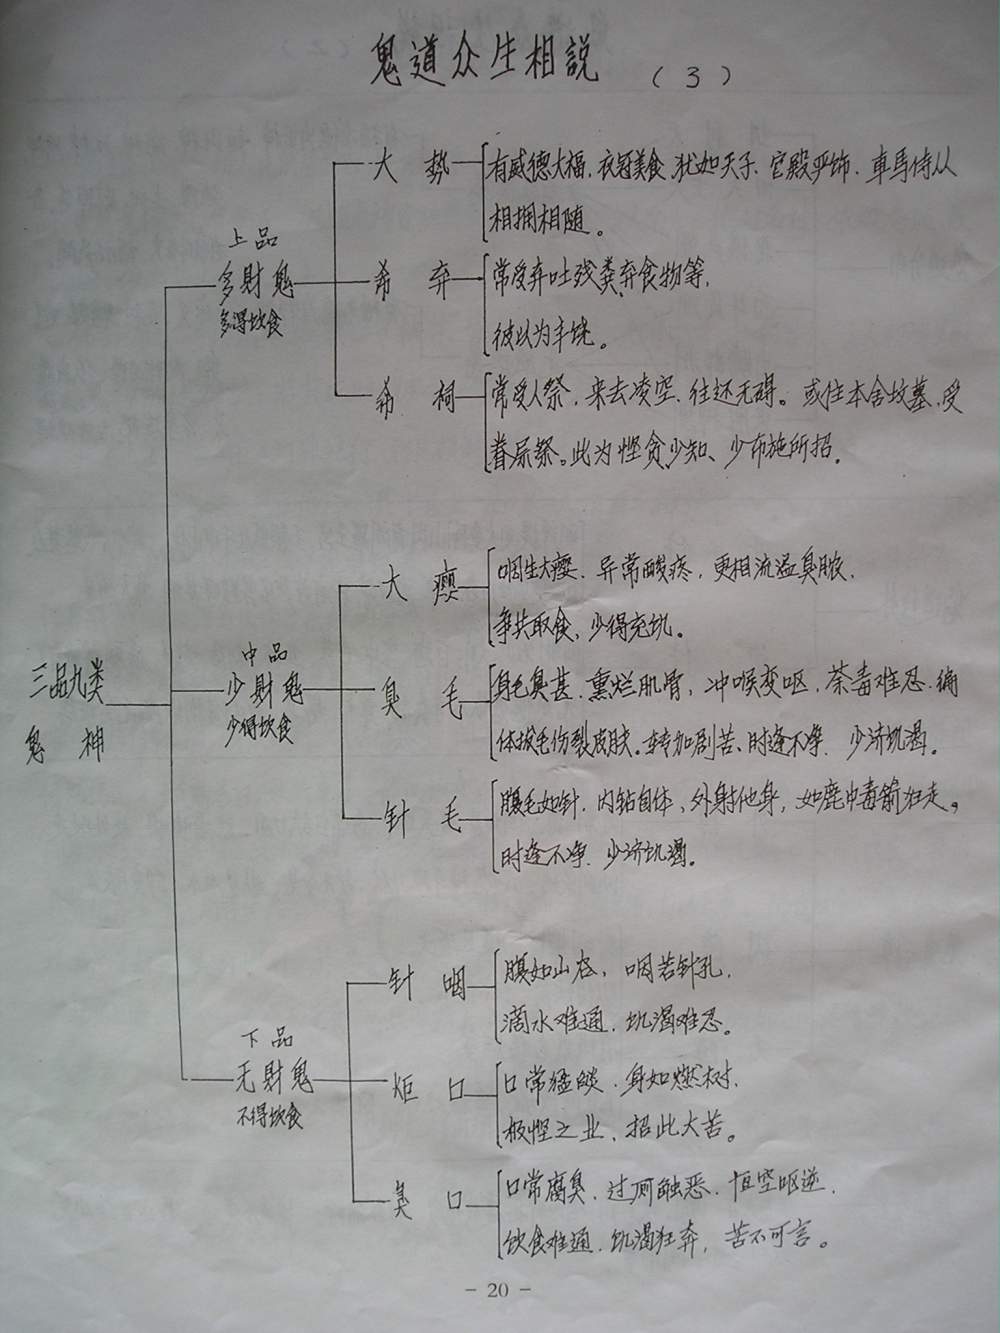 鬼道众生相説 （3）
大势 有威德大福，衣冠美食，犹如天子、宫殿严饰，车马侍从
相拥相随。
上品
多財鬼
多得饮食
希弃 常受弃吐残粪、弃食物等，
彼以为丰饶。
希祠 常受人祭，来去凌空，往还无碍。或住本舍坟墓，受
眷属祭。此为悭贪少知、少布施所招。
大瘿 咽生大瘿，异常酸疼，更相流溢臭脓，
争共取食，少得充饥。
三品九类
鬼神
中品
少財鬼
少得饮食
臭毛 身毛臭甚，熏烂肌骨，冲喉变呕，荼毒难忍，
体拔毛伤裂皮肤。转加剧苦、时逢不净，少济饥渴。
针毛 腹毛如针，内钻自体、外射他身，如鹿中毒箭狂走。
时逢不净，少济饥渴。
针咽 腹如山谷，咽若针孔，
滴水难通，饥渴难忍。
下品
无財鬼
不得饮食
炬口 口常猛燄，身如燃树，
极悭之业，招此大苦。
臭口 口常腐臭，过厕触恶，恒空呕逆，
饮食难通，饥渴狂奔，苦不可言。
- 20 -